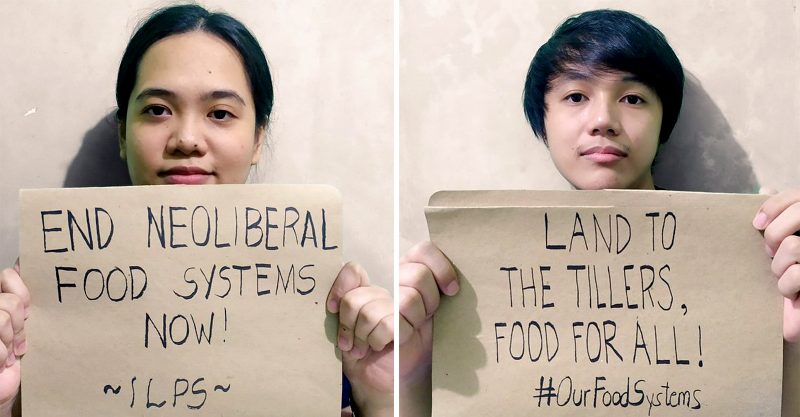 END NEOLIBERAL
FOOD SYSTEMS
NOW!
~ILPS~
LAND TO
THE TILLERS,
FOOD FOR ALL!
#OurFoodSystems